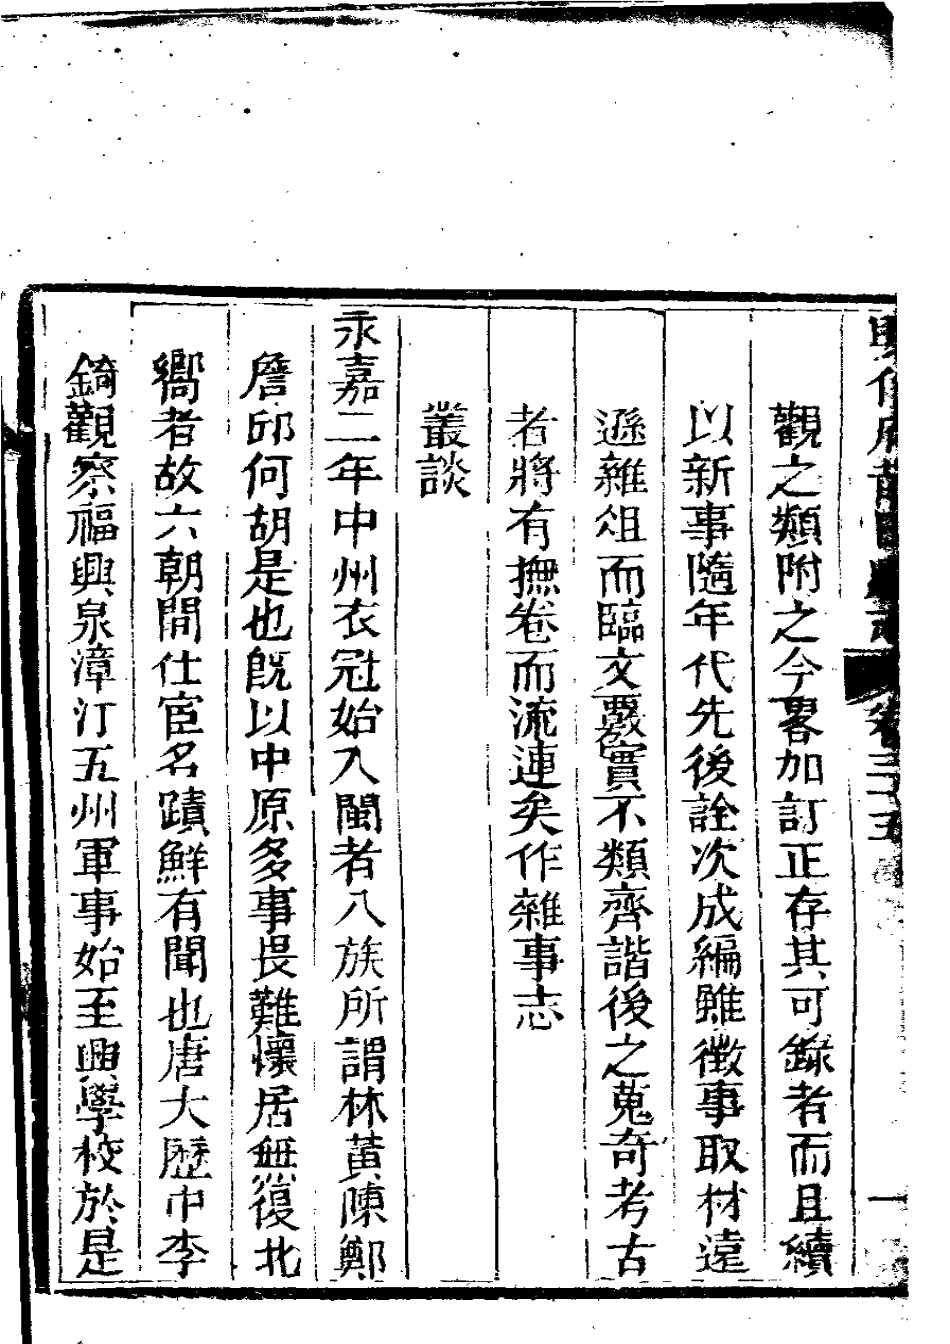 興化府莆田縣志 卷三十五 一
觀之類附之今畧加訂正存其可錄者而且續
以新事隨年代先後詮次成編雖徴事取材遠
遜雜俎而臨文覈實不類齊諧後之蒐奇考古
者將有撫卷而流連矣作雜事志
叢談
永嘉二年中州衣冠始入閩者八族所謂林黃陳鄭
詹邱何胡是也旣以中原多事畏難懷居無復北
嚮者故六朝間仕宦名蹟鮮有聞也唐大歷中李
錡觀察福興泉漳汀五州軍事始至興學校於是